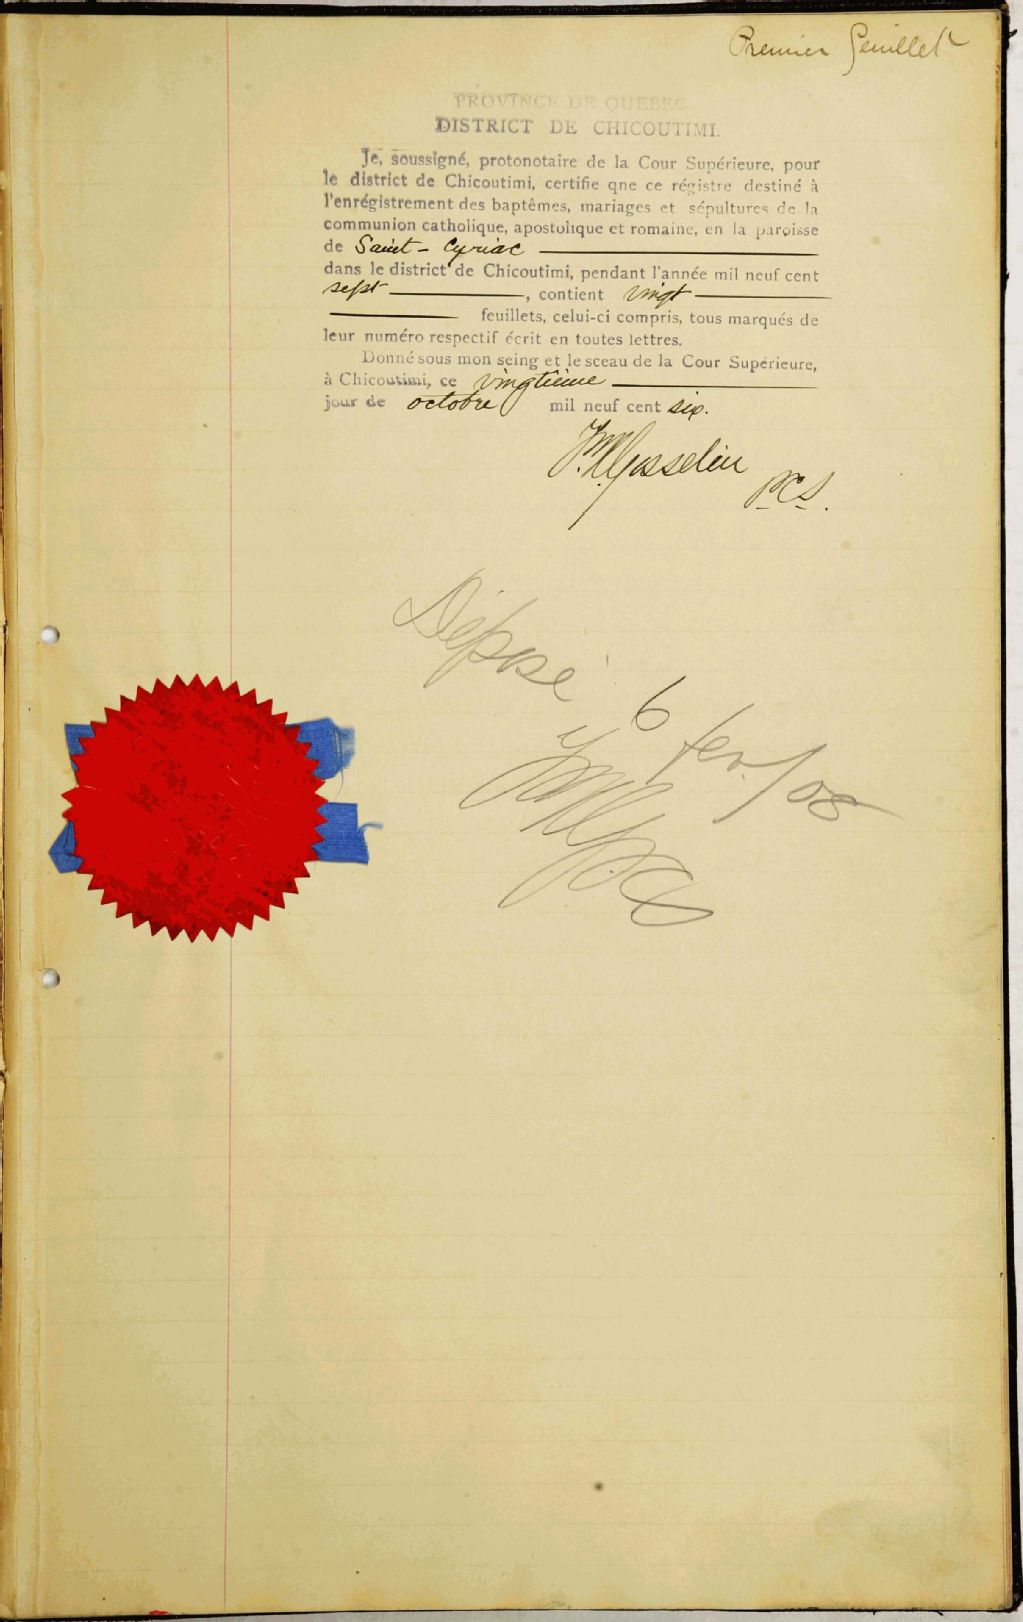 Premier feuillet
PROVINCE DE QUEBEC
DISTRICT DE CHICOUTIMI.
Je, soussigné, protonotaire de la Cour Supérieure, pour
le district de Chicoutimi, certifie qne ce régistre destiné à
l'enrégistrement des baptêmes, mariages et sépultures de la
communion catholique, apostolique et romaine, en la paroisse
de Saint-Cyriac
dans le district de Chicoutimi, pendant l'année mil neuf cent
sept, contient vingt
feuillets, celui-ci compris, tous marqués de
leur numéro respectif écrit en toutes lettres.
Donné sous mon seing et le sceau de la Cour Supérieure,
à Chicoutimi, ce vingtième
jour de octobre mil neuf cent six.
Gosselin
P.C.S.
Déposé
6 fev/08